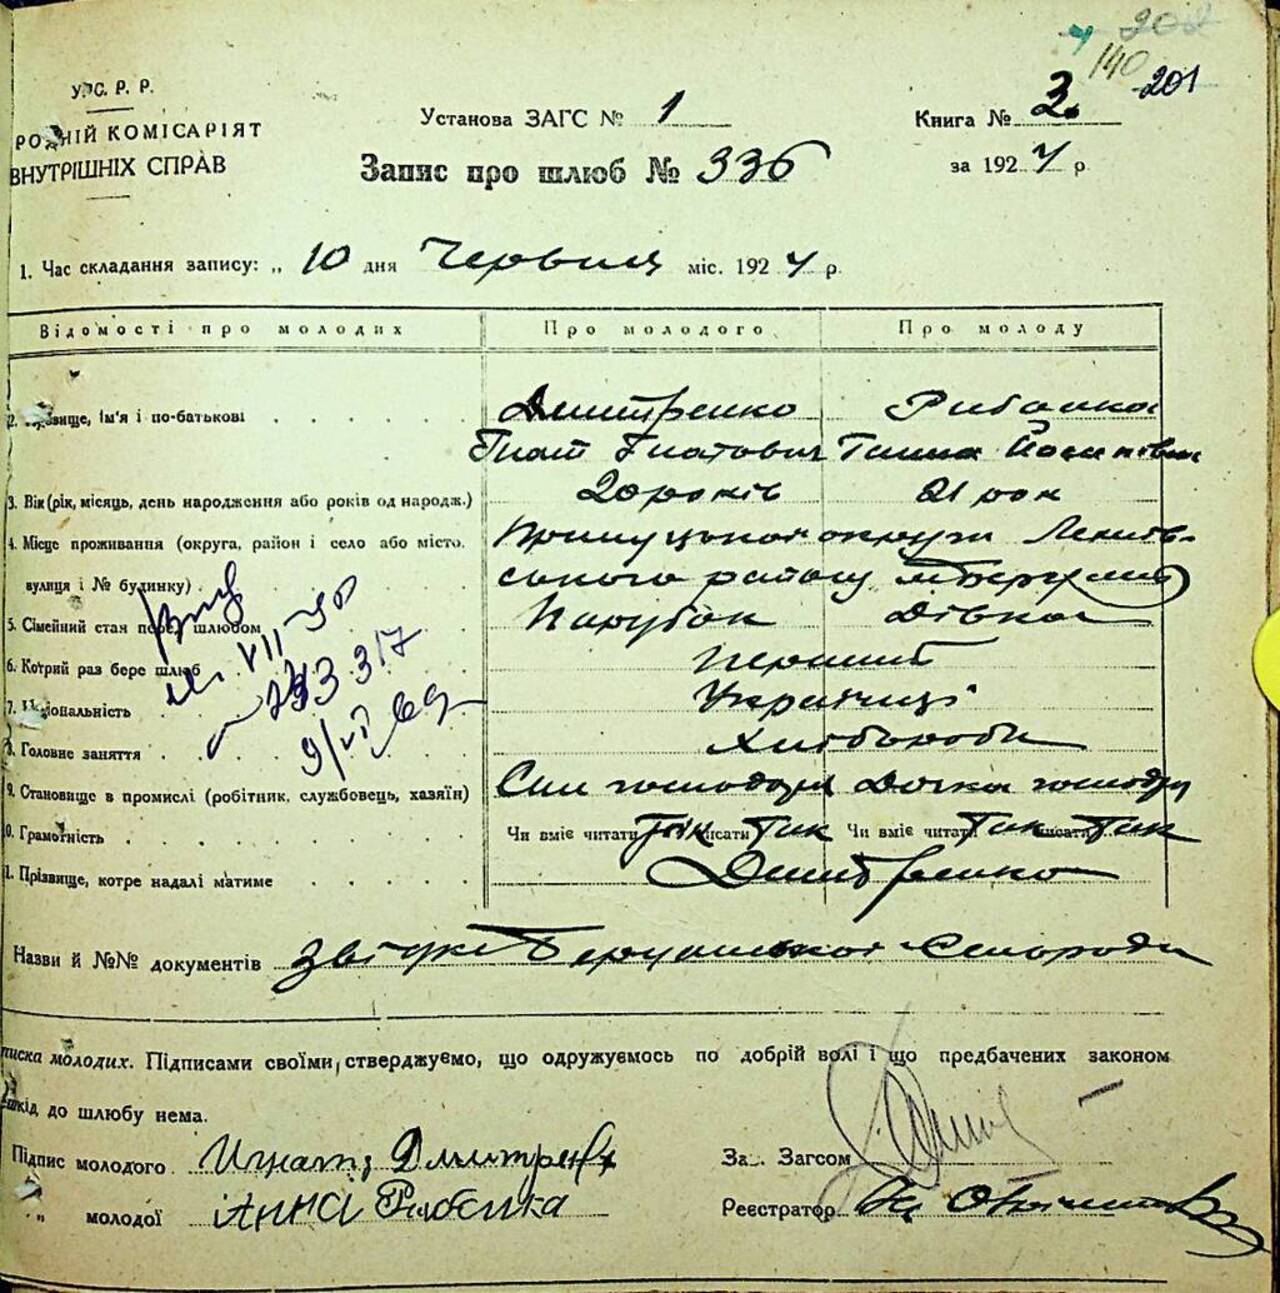 202
140 201
У.С.Р.Р.
РОДНІЙ КОМІСАРІЯТ
ВНУТРІШНІХ СПРАВ
Установа ЗАГС № 1
Книга № 3
Запис про шлюб № 336
за 1924 р.
1. Час складання запису: „ 10 дня Червня міс. 1924 р.
Відомості про молодих Про молодого Про молоду
ім'я і по-батькові Дмитренко Рибалка
Гнат Гнатович Ганна Йосипівна
3. Вік (рік, місяць, день народження або років од народж.) 20 років 21 рок
4. Місце проживання (округа, район і село або місто, Прилуцької округи
вулиця і № будинку) ського району
5. Сімейний стан перед шлюбом Парубок Дівка
6. Котрий раз бере шлюб перший
7. Національність Українці
8. Головне заняття Хлібороби
9. Становище в промислі (робітник, службовець, хазяїн) Син господаря Дочка господаря
10. Грамотність Чи вміє читати так писати так Чи вміє читати так писати так
11. Прізвище, котре надалі матиме Дмитренко
Назви й №№ документів Звідки Сельради
писка молодих. Підписами своїми стверджуємо, що одружуємось по добрій волі і що предбачених законом
шкід до шлюбу нема.
Підпис молодого Игнат Дмитренко
За.. Загсом
„ молодої Анна Рибалка
Реєстратор